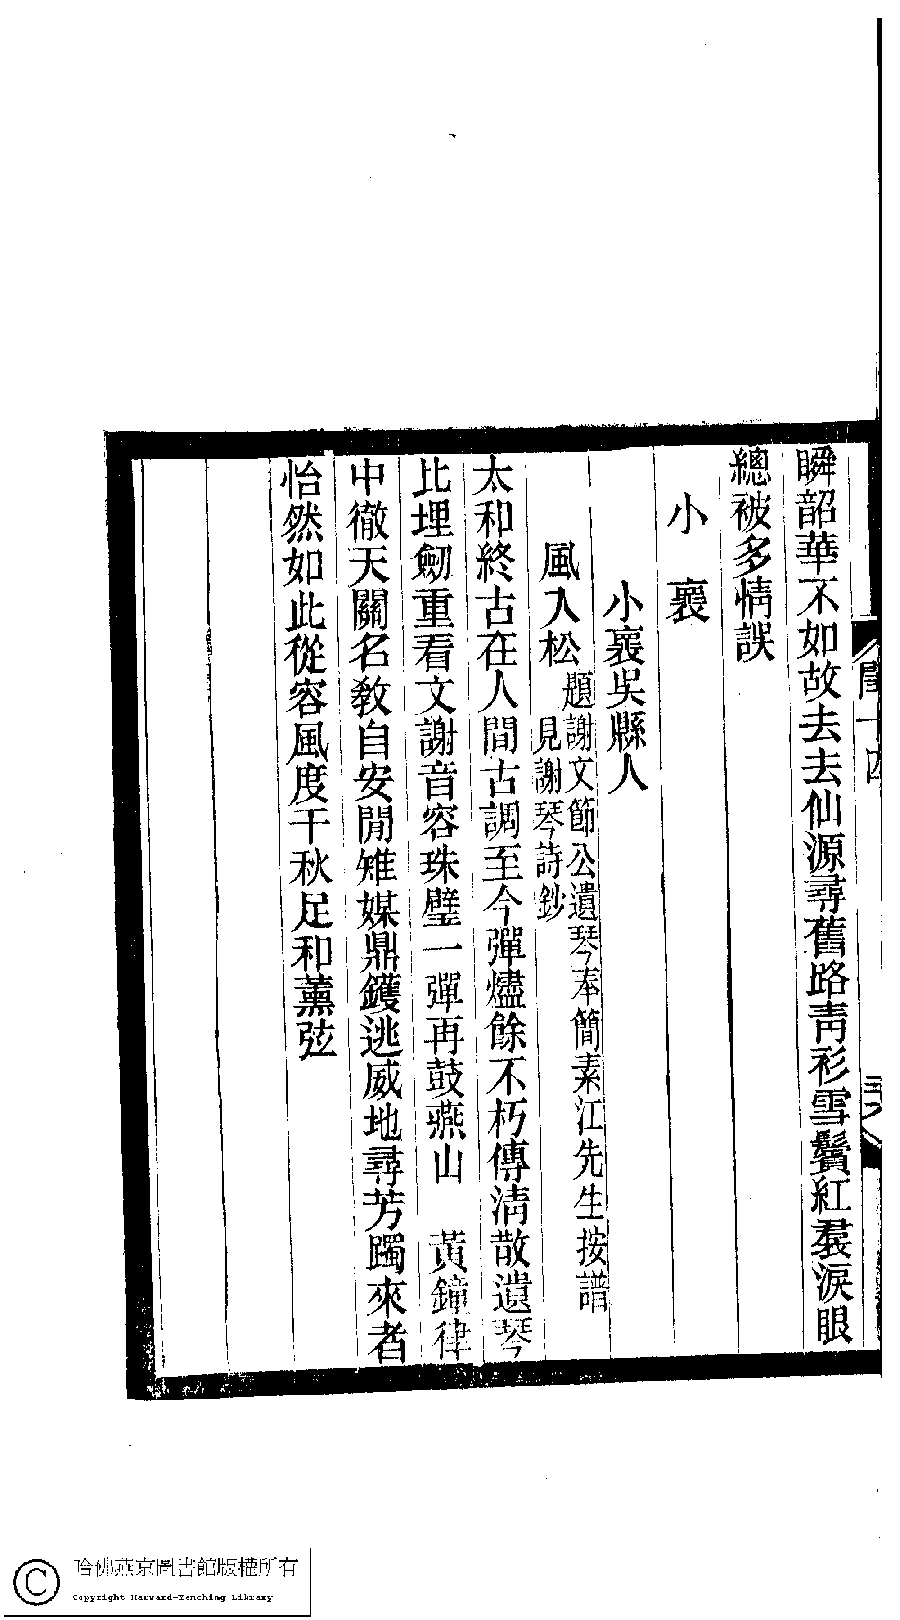 瞬韶華不如故去去仙源尋舊路靑衫雪鬢紅裠淚眼
總被多情誤
小褭
小褭吳縣人
風入松題謝文節公遺琴奉簡素江先生按譜
見謝琴詩鈔
太和終古在人間古調至今彈燼餘不朽傳淸散遺琴
比埋劒重看文謝音容珠璧一彈再鼓燕山　黃鐘律
中徹天關名敎自安閒雉媒鼎鑊逃威地尋芳躅來者
怡然如此從容風度千秋足和薰弦
閨十四
哈佛燕京圖書館版權所有
Copyright Harvard-Yenching Library